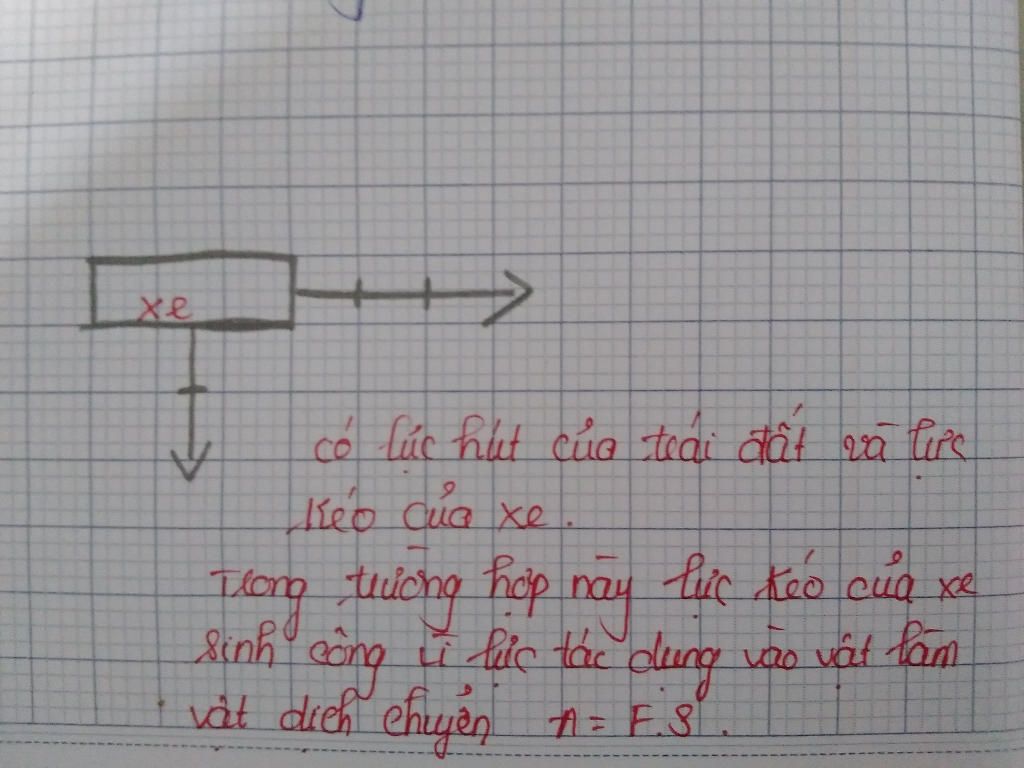 xe
có lực hút của trái đất và lực
kéo của xe.
Trong trường hợp này lực kéo của xe
sinh công vì lực tác dụng vào vật làm
vật dịch chuyển n = F.S.